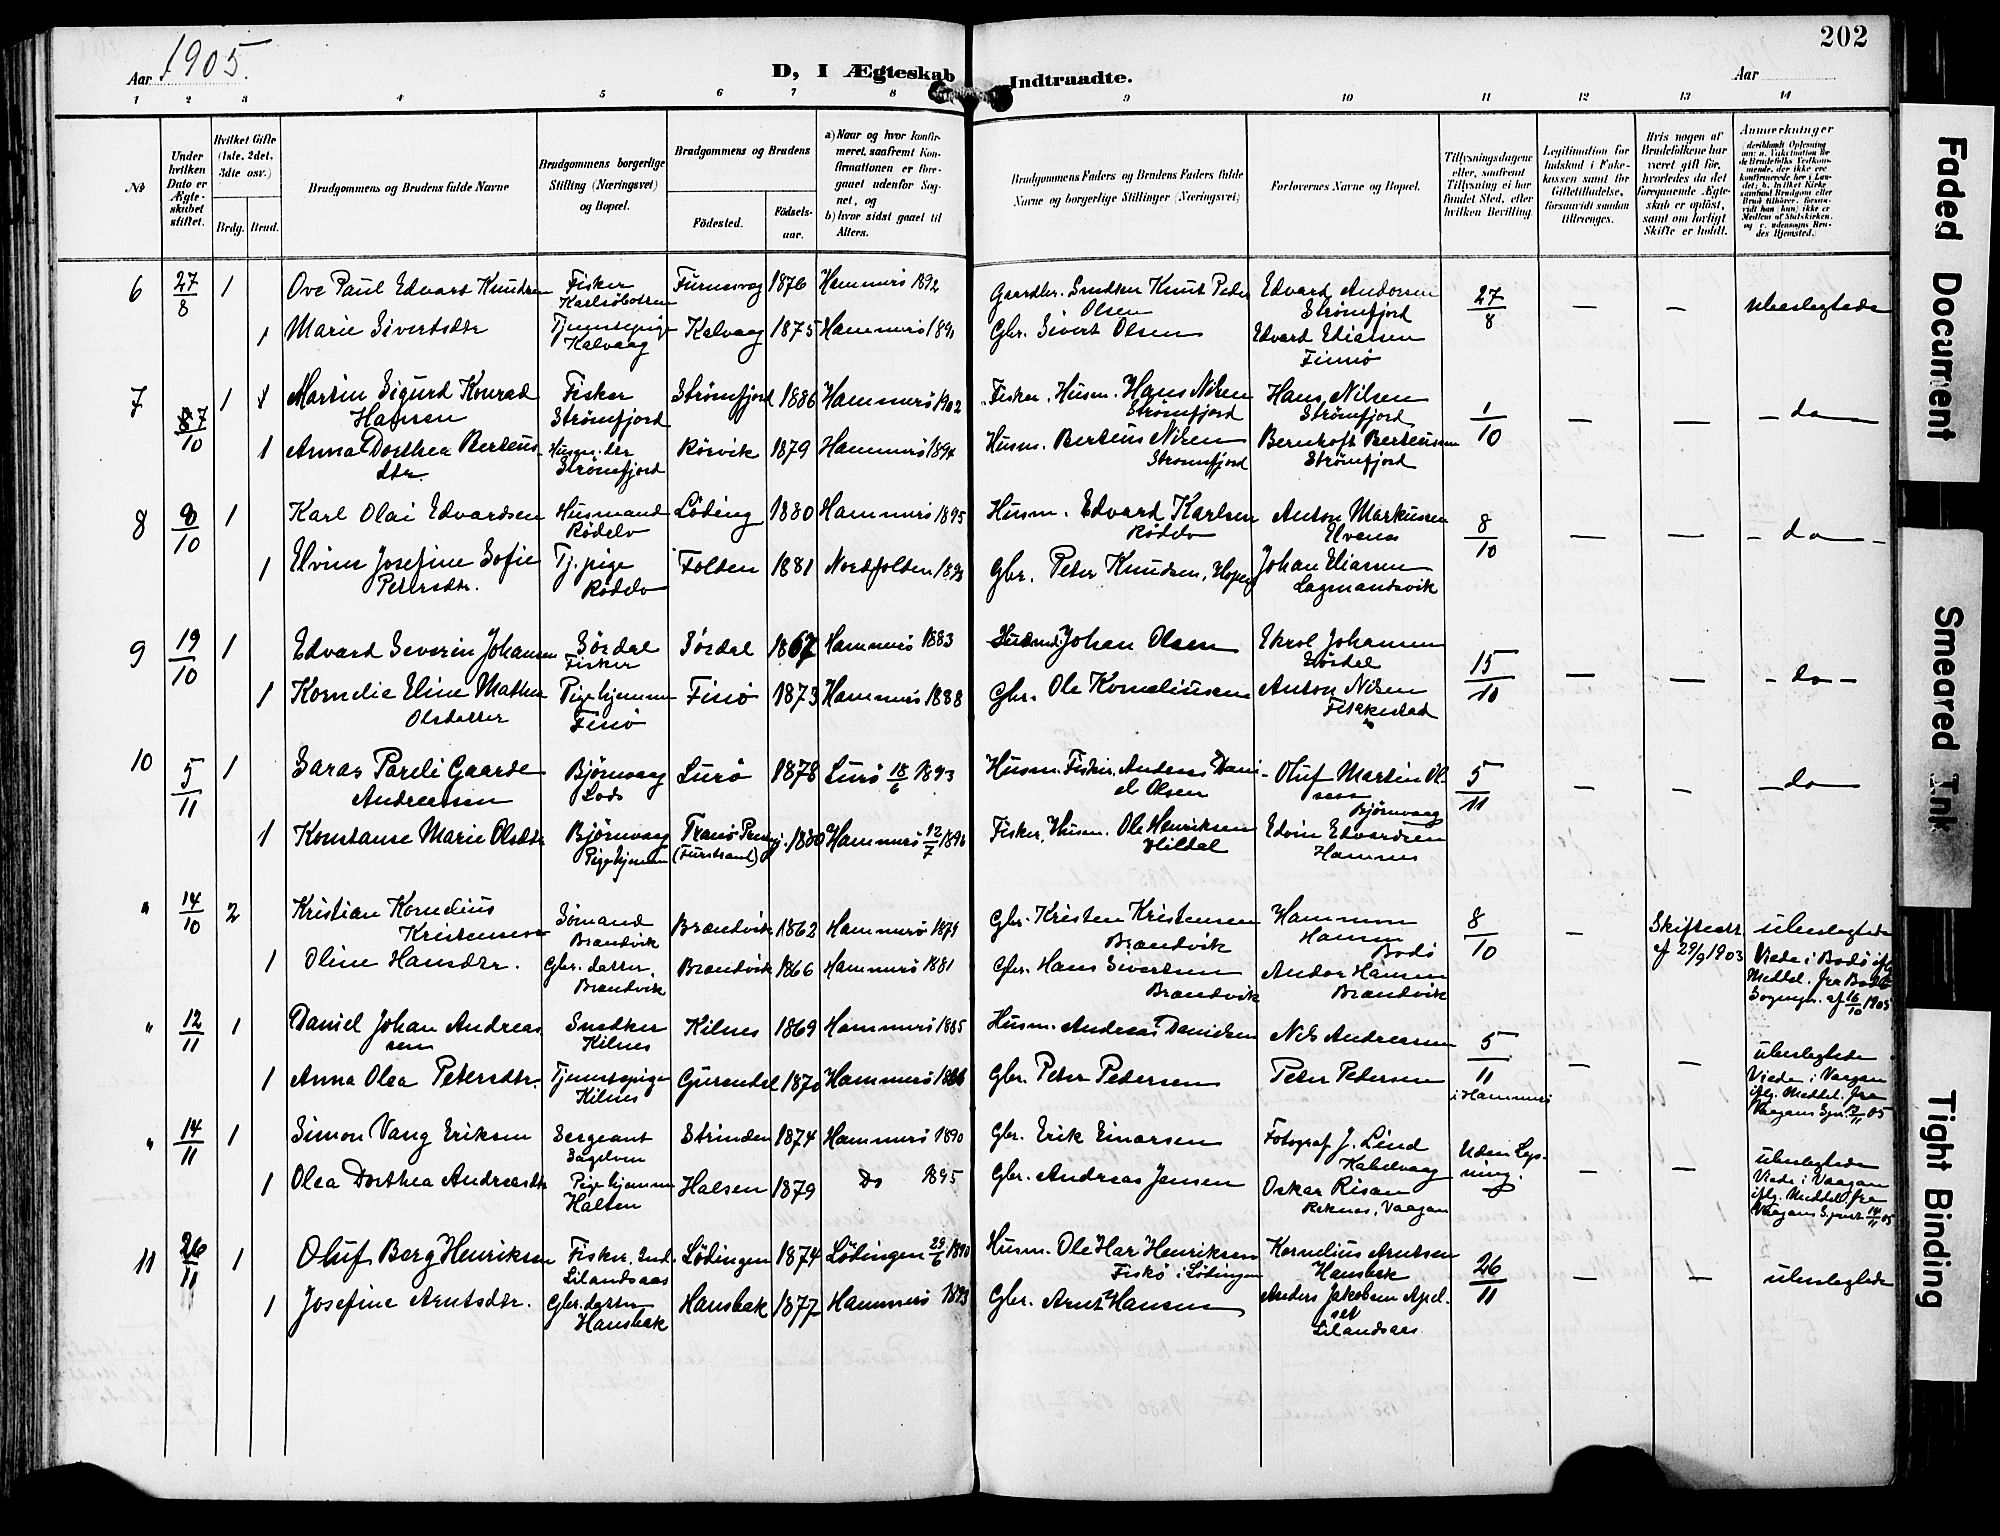 202
Aar 1905.
D, I Ægteskab Indtraadte.
Aar
1 2 3 4 5 6 7 8 9 10 11 12 13 14
No
Under hvilken Dato er Ægteskabet stiftet.
Hvilket Gifte (1ste, 2det, 3die osv.)
Brdg. Brud.
Brudgommens og Brudens fulde Navne
Brudgommens borgerlige Stilling (Næringsvei) og Bopæl.
Brudgommens og Brudens
Födested.
Födsels-aar.
a) Naar og hvor konfirmeret, saafremt Konfirmationen er foregaaet udenfor Sognet, og
b) hvor sidst gaaet til Alters.
Brudgommens Faders og Brudens Faders fulde Navne og borgerlige Stillinger (Næringsvei)
Forlovernes Navne og Bopæl.
Tillysningsdagene eller, saafremt Tillysning ei har fundet Sted, efter hvilken Bevilling.
Legitimation for Indskud i Enkekassen samt for Giftetilladelse, forsaavidt saadan tiltrænges.
Hvis nogen af Brudefolkene har været gift för, hvorledes da det foregaaende Ægteskab er oplöst, samt om lovligt Skifte er holdt.
Anmerkninger
6 27/8 1 Ove Paul Edvart Knudsen Fisker Karlsöbotten Furnesvag 1876 Hammerö 1892 Gaardbr. Snedker Knut Peder Olsen Edvard Andorsen Strömfjord 27/8 — — ubeslegtede
1 Marie Sivertsdtr Tjenestepige Kalvaag Kalvaag 1875 Hammerö Gbr. Sivert Olsen Edvard Finnö
7 10 1 Martin Sigurd Konrad Hansen Fisker Strömfjord Strömfjord 1886 Hammerö 1902 Fisker, Husm. Hans Nilsen Strömfjord Hans Nilsen Strömfjord 1/10 — — — do —
1 Anna Dorthea Berteus dtr. Husm. dtr Strömfjord Rörvik 1879 Hammerö 1894 Husm. Berteus Nilsen Strömfjord Bernhoft Berteussen Strömfjord
8 8/10 1 Karl Olai Edvardsen Husmand Rödelv Löding 1880 Hammerö 1895 Husm. Edvard Karlsen Rödelv Anton Markussen Elvenes 8/10 — — — do —
1 Elvine Josefine Sofie Petersdtr. Tj. pige Rödelv Folden 1881 Nordfolden Gbr. Peter Knudsen, Johan Eliassen Lagmandsvik
9 19/10 1 Edvard Severin Johansen Sördal Fisker Sördal 1867 Hammerö 1883 Johan Olsen Ekrol Johansen Sördal 15/10 — — — do —
1 Kornelie Eline Mathea Olsdatter Pige hjemme Finö Finö 1873 Hammerö 1888 Gbr. Ole Korneliussen Anton Nilsen
10 5/11 1 Saras Pareli Gaarde Andreassen Björnvaag Lods Lurö 1878 Lurö 18/6 1893 Husm. Fisker, Andreas Daniel Olsen Oluf Martin Olsen Björnvaag 5/11 — — — do
1 Konstanse Marie Olsdtr Björnvaag Pige hjemme Tranö (Furstrand) 1880 Hammerö 12/7 1896 Fisker, Husm. Ole Henriksen Hildal Edvin Edvardsen Hamnes
" 14/10 2 Kristian Kornelius Kristensen Sömand Brandvik Brandvik 1862 Hammerö 1879 Gbr. Kristen Kristensen Brandvik Hansen Bodö 8/10 — Skifteatt. af 29/9 1903 ubeslegtede Viede i Bodö iflg Meddel. fra Bodö Sognepr. af 16/10 1905
1 Oline Hansdtr. Gbr. datter, Brandvik Brandvik 1866 Hammerö 1881 Gbr. Hans Sivertsen Brandvik Andor Hansen Brandvik
" 12/11 1 Daniel Johan Andreassen Snedker Kilnes Kilnes 1869 Hammerö 1885 Husm. Andreas Danielsen Nils Andreassen 5/11 i Hammerö — — ubeslegtede Viede i Vaagan iflg. Meddel. fra Vaagans
1 Anna Olea Petersdtr. Tjenestepige Kilnes 1870 Hammerö Gbr. Peter Pedersen Peter Pedersen
" 14/11 1 Simon Vang Eriksen Sergeant Sagelven Strinden 1874 Hammerö 1890 Gbr. Erik Einarsen Fotograf J. Lind Kabelvaag Uden Lysning. — — ubeslegtede Viede i Vaagan iflg. Meddel. fra Vaagans
1 Olea Dorthea Andreasdtr Pige hjemme Halsen Halsen 1879 Do 1895 Gbr. Andreas Jensen Oskar Risan Reknes, Vaagan
11 26/11 1 Oluf Berg Henriksen Fisker, Ind. Lilandsaas Lödingen 1874 Lödingen 29/6 1890 Husm. Ole Har Henriksen Fiskö i Lödingen Kornelius Arntsen Hansbak 26/11 — — ubeslegtede
1 Josefine Arntsdtr. Gbr. datter Hansbak Hansbak 1877 Hammerö 1893 Gbr. Arnt Hansen Anders Jakobsen Lilandsaas
Faded Document
Smeared Ink
Tight Binding